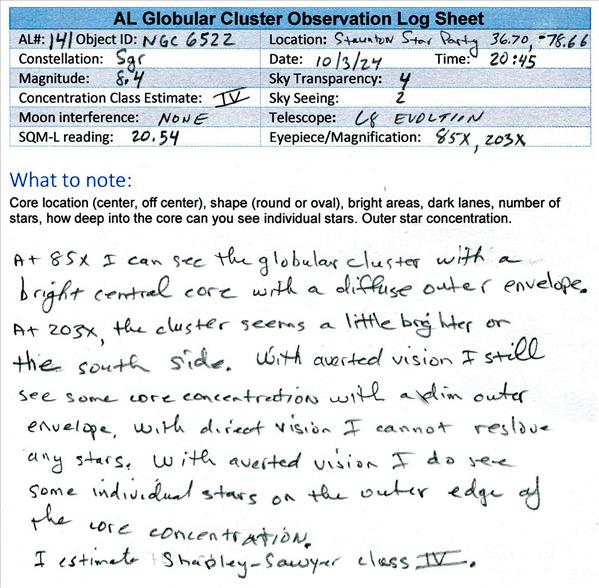 AL Globular Cluster Observation Log Sheet
AL#: 141 Object ID: NGC 6522 Location: Staunton Star Party 36.70, -78.66
Constellation: Sgr Date: 10/3/24 Time: 20:45
Magnitude: 8.4 Sky Transparency: 4
Concentration Class Estimate: IV Sky Seeing: 2
Moon interference: NONE Telescope: C8 EVOLTION
SQM-L reading: 20.54 Eyepiece/Magnification: 85X, 203X
What to note:
Core location (center, off center), shape (round or oval), bright areas, dark lanes, number of
stars, how deep into the core can you see individual stars. Outer star concentration.
At 85X I can see the globular cluster with a
bright central core with a diffuse outer envelope.
At 203X, the cluster seems a little brighter on
the south side. With averted vision I still
see some core concentration with a dim outer
envelope. With direct vision I cannot reslove
any stars. With averted vision I do see
some individual stars on the outer edge of
the core concentration.
I estimate Shapley-Sawyer class IV.